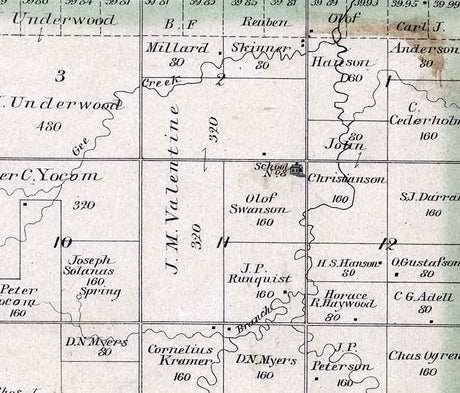 39 81
39 86
39.95
39 94
39 99
Underwood
B. F
Millard
80
Reuben
Skinner
80
Olof
Hanson
160
Carl J.
Anderson
80
3
Underwood
480
Gee
Creek
2
1
C.
Cederholm
160
J. M. Valentine
320
320
80
John
Christianson
160
School
No. 3
er C. Yocom
320
Olof
Swanson
160
S.J. Darrah
160
10
11
12
Joseph
Solanas
160
Spring
J.P.
Runquist
160
H S. Hanson
80
O. Gustafson
80
Peter
ocom
160
Horace
R. Haywood
80
C G. Adell
80
Branch
D.N. Myers
80
Cornelius
Kramer
160
D.N. Myers
160
J.P.
Peterson
160
Chas Ogren
160